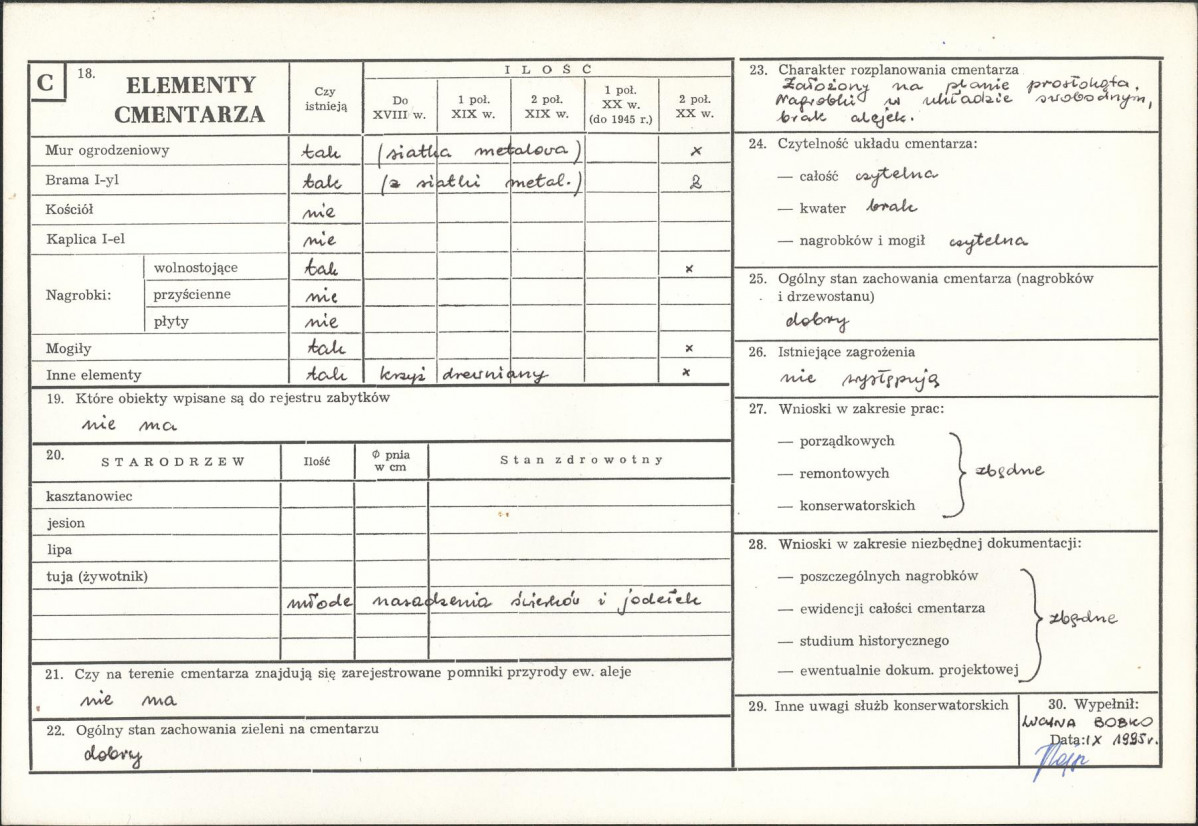 C
18.
ELEMENTY
CMENTARZA
Czy
istnieją
I L O Ś Ć
Do
XVIII w.
1 poł.
XIX w.
2 poł.
XIX w.
1 poł.
XX w.
(do 1945 r.)
2 poł.
XX w.
Mur ogrodzeniowy tak (siatka metalowa) x
Brama I-yl tak (z siatki metal.) 2
Kościół nie
Kaplica I-el nie
Nagrobki:
wolnostojące tak x
przyścienne nie
płyty nie
Mogiły tak x
Inne elementy tak krzyż drewniany x
19. Które obiekty wpisane są do rejestru zabytków
nie ma
20. STARODRZEW Ilość Ø pnia
w cm Stan zdrowotny
kasztanowiec
jesion
lipa
tuja (żywotnik)
młode nasadzenia świerków i jodełek
21. Czy na terenie cmentarza znajdują się zarejestrowane pomniki przyrody ew. aleje
nie ma
22. Ogólny stan zachowania zieleni na cmentarzu
dobry
23. Charakter rozplanowania cmentarza
Założony na planie prostokąta.
Nagrobki w układzie swobodnym,
brak alejek.
24. Czytelność układu cmentarza:
— całość czytelna
— kwater brak
— nagrobków i mogił czytelna
25. Ogólny stan zachowania cmentarza (nagrobków
i drzewostanu)
dobry
26. Istniejące zagrożenia
nie występują
27. Wnioski w zakresie prac:
— porządkowych
— remontowych zbędne
— konserwatorskich
28. Wnioski w zakresie niezbędnej dokumentacji:
— poszczególnych nagrobków
— ewidencji całości cmentarza
zbędne
— studium historycznego
— ewentualnie dokum. projektowej
29. Inne uwagi służb konserwatorskich
30. Wypełnił:
IWONA BOBKO
Data: IX 1995 r.